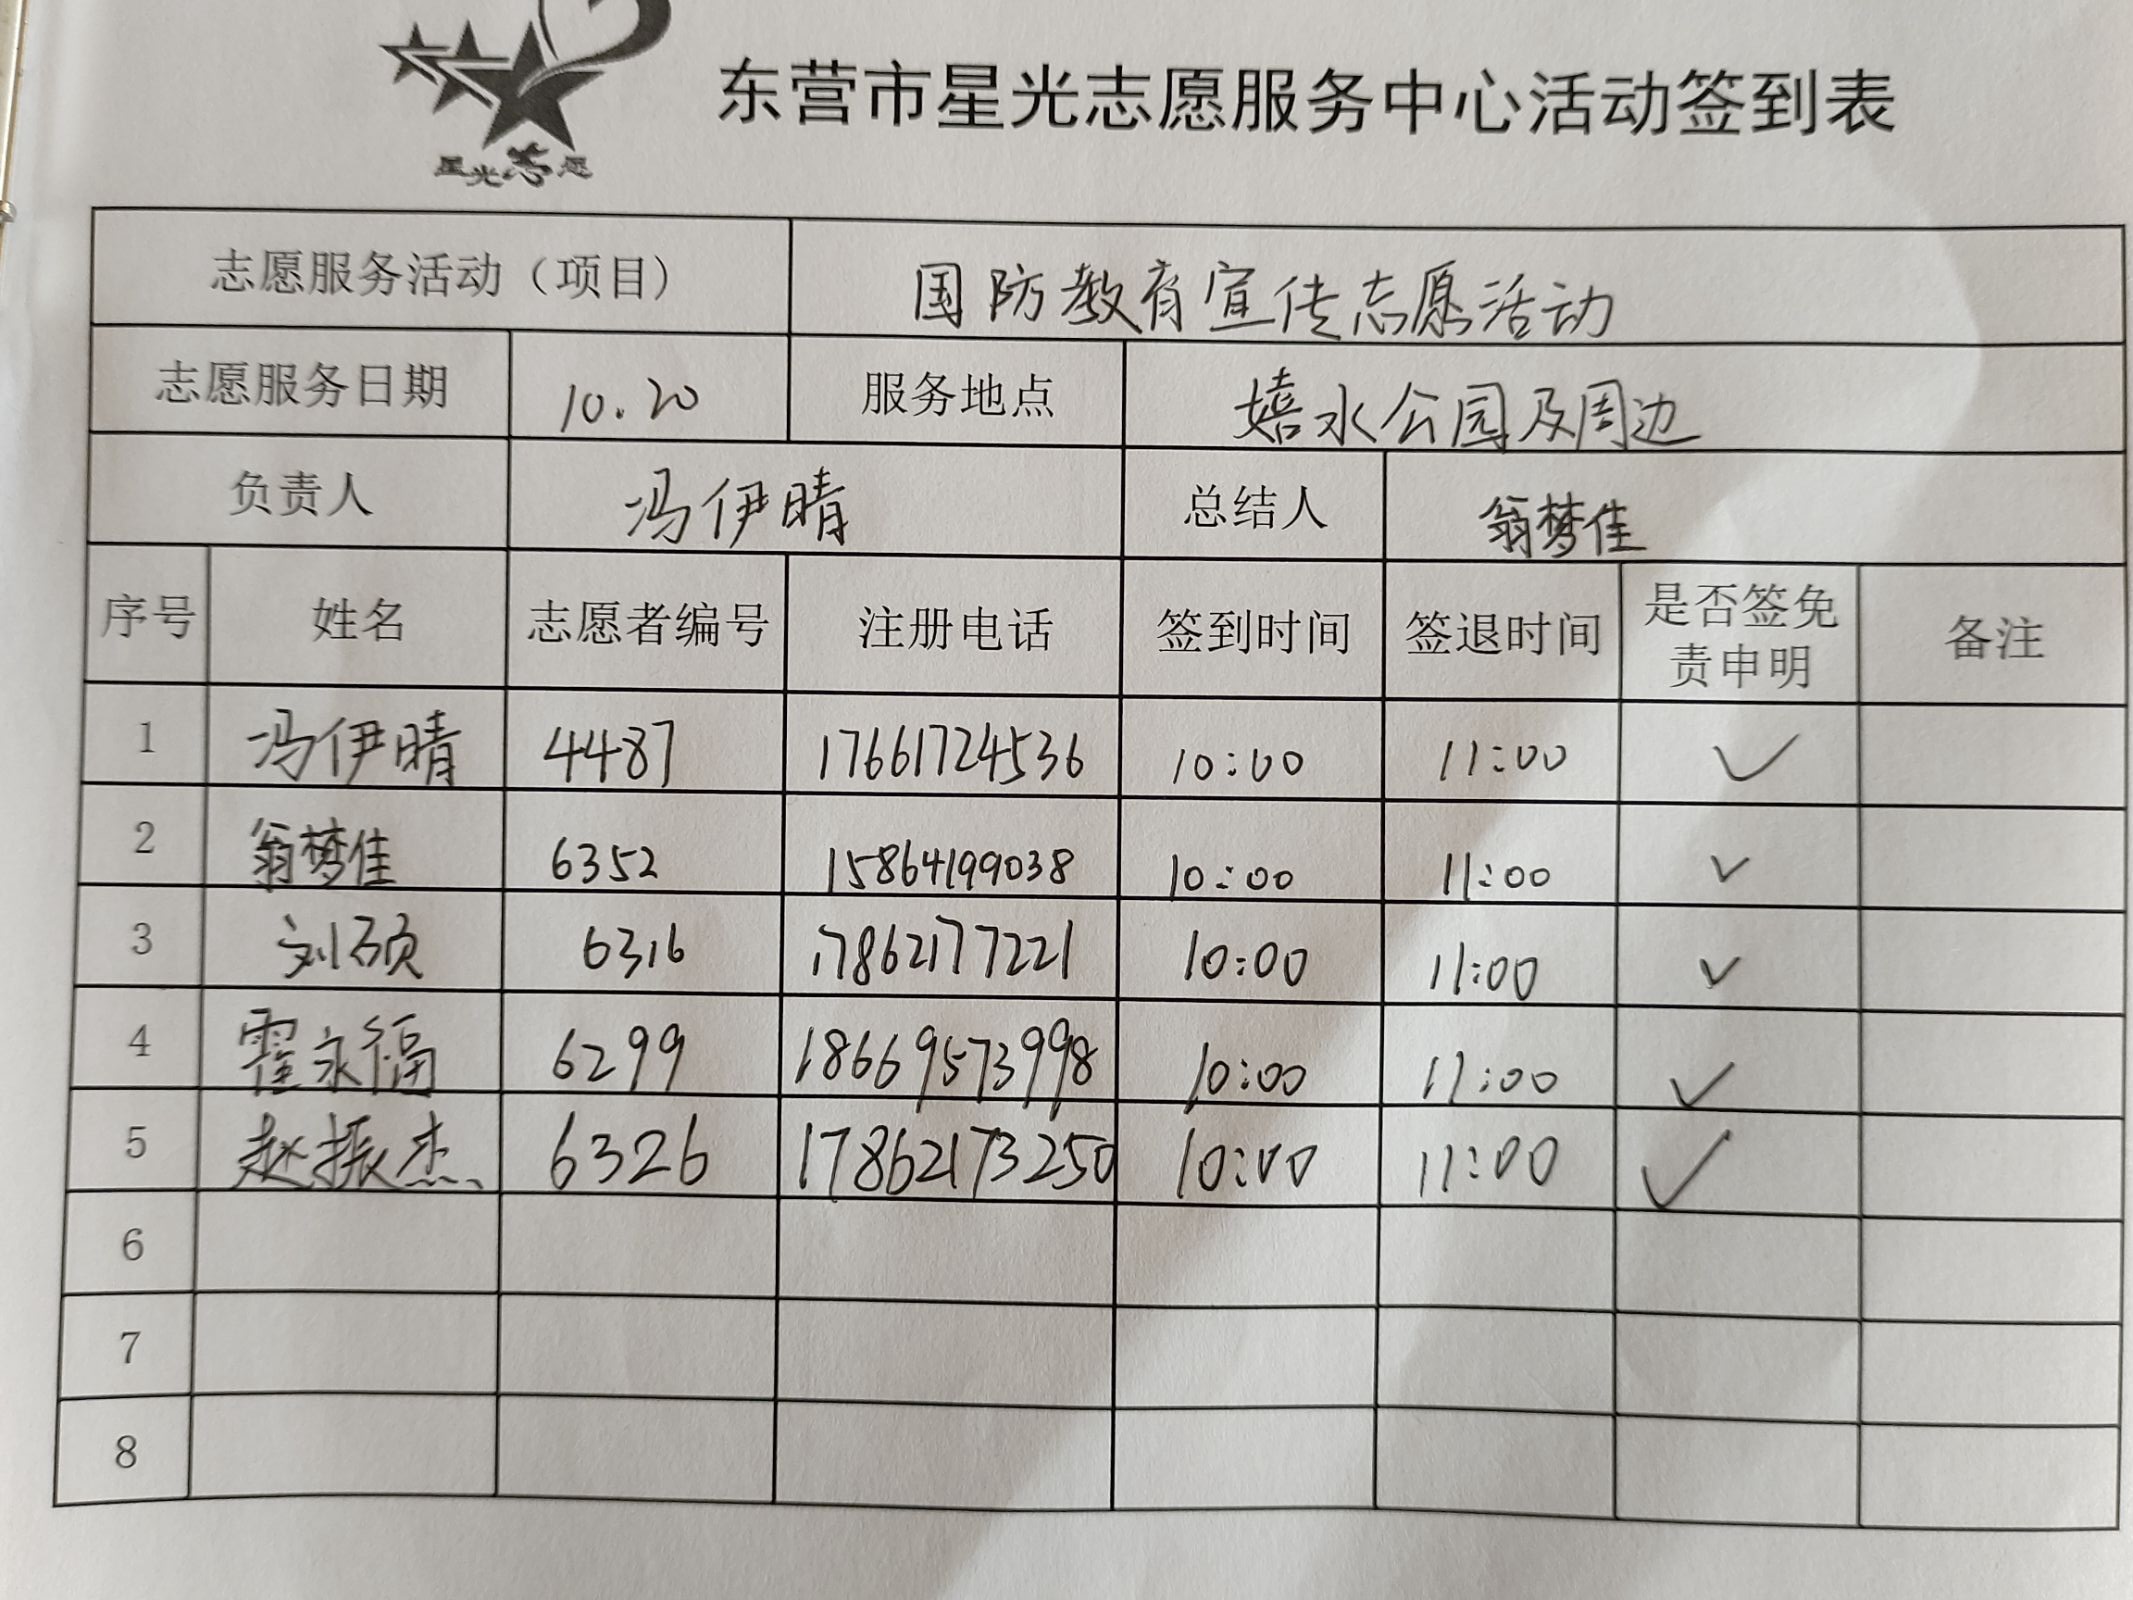 星光志愿
东营市星光志愿服务中心活动签到表
志愿服务活动（项目） 国防教育宣传志愿活动
志愿服务日期 10.20 服务地点 嬉水公园及周边
负责人 冯伊晴 总结人 翁梦佳
序号 姓名 志愿者编号 注册电话 签到时间 签退时间 是否签免责申明 备注
1 冯伊晴 4487 17661724536 10:00 11:00 ✓
2 翁梦佳 6352 15864199038 10:00 11:00 ✓
3 刘硕 6316 17862177221 10:00 11:00 ✓
4 霍永福 6299 18669573998 10:00 11:00 ✓
5 赵振杰 6326 17862173250 10:00 11:00 ✓
6
7
8